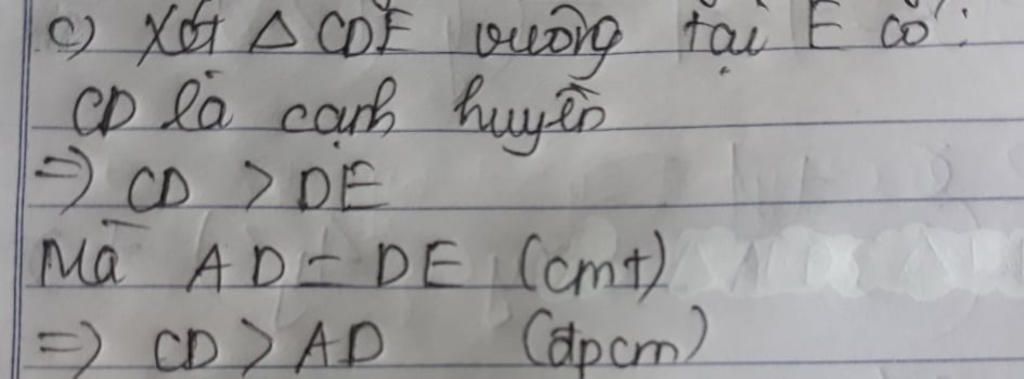 c) Xét Δ CDE vuông tại E có:
CD là cạnh huyền
=) CD > DE
Mà AD = DE (cmt)
=) CD > AD (đpcm)